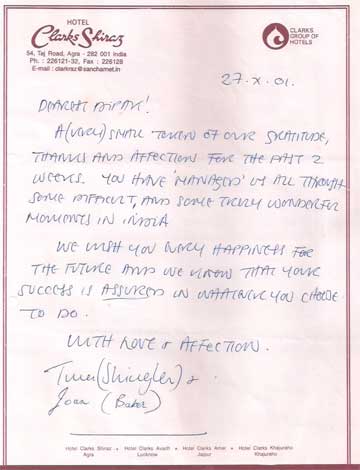 HOTEL
Clarks Shiraz
54, Taj Road, Agra - 282 001 India
Ph. : 226121-32, Fax : 226128
E-mail : clarkraz@sanchamet.in
CLARKS
GROUP OF
HOTELS
27.X.01.
DEAREST DIPAK!
A (VERY) SMALL TOKEN OF OUR GRATITUDE,
THANKS AND AFFECTION FOR THE PAST 2
WEEKS. YOU HAVE 'MANAGED' US ALL THROUGH
SOME DIFFICULT, AND SOME TRULY WONDERFUL
MOMENTS IN INDIA
WE WISH YOU EVERY HAPPINESS FOR
THE FUTURE AND WE KNOW THAT YOUR
SUCCESS IS ASSURED IN WHATEVER YOU CHOOSE
TO DO.
WITH LOVE & AFFECTION.
(Shingler) &
Joan (Baker)
Hotel Clarks Shiraz • Hotel Clarks Avadh • Hotel Clarks Amer • Hotel Clarks Khajuraho
Agra Lucknow Jaipur Khajuraho